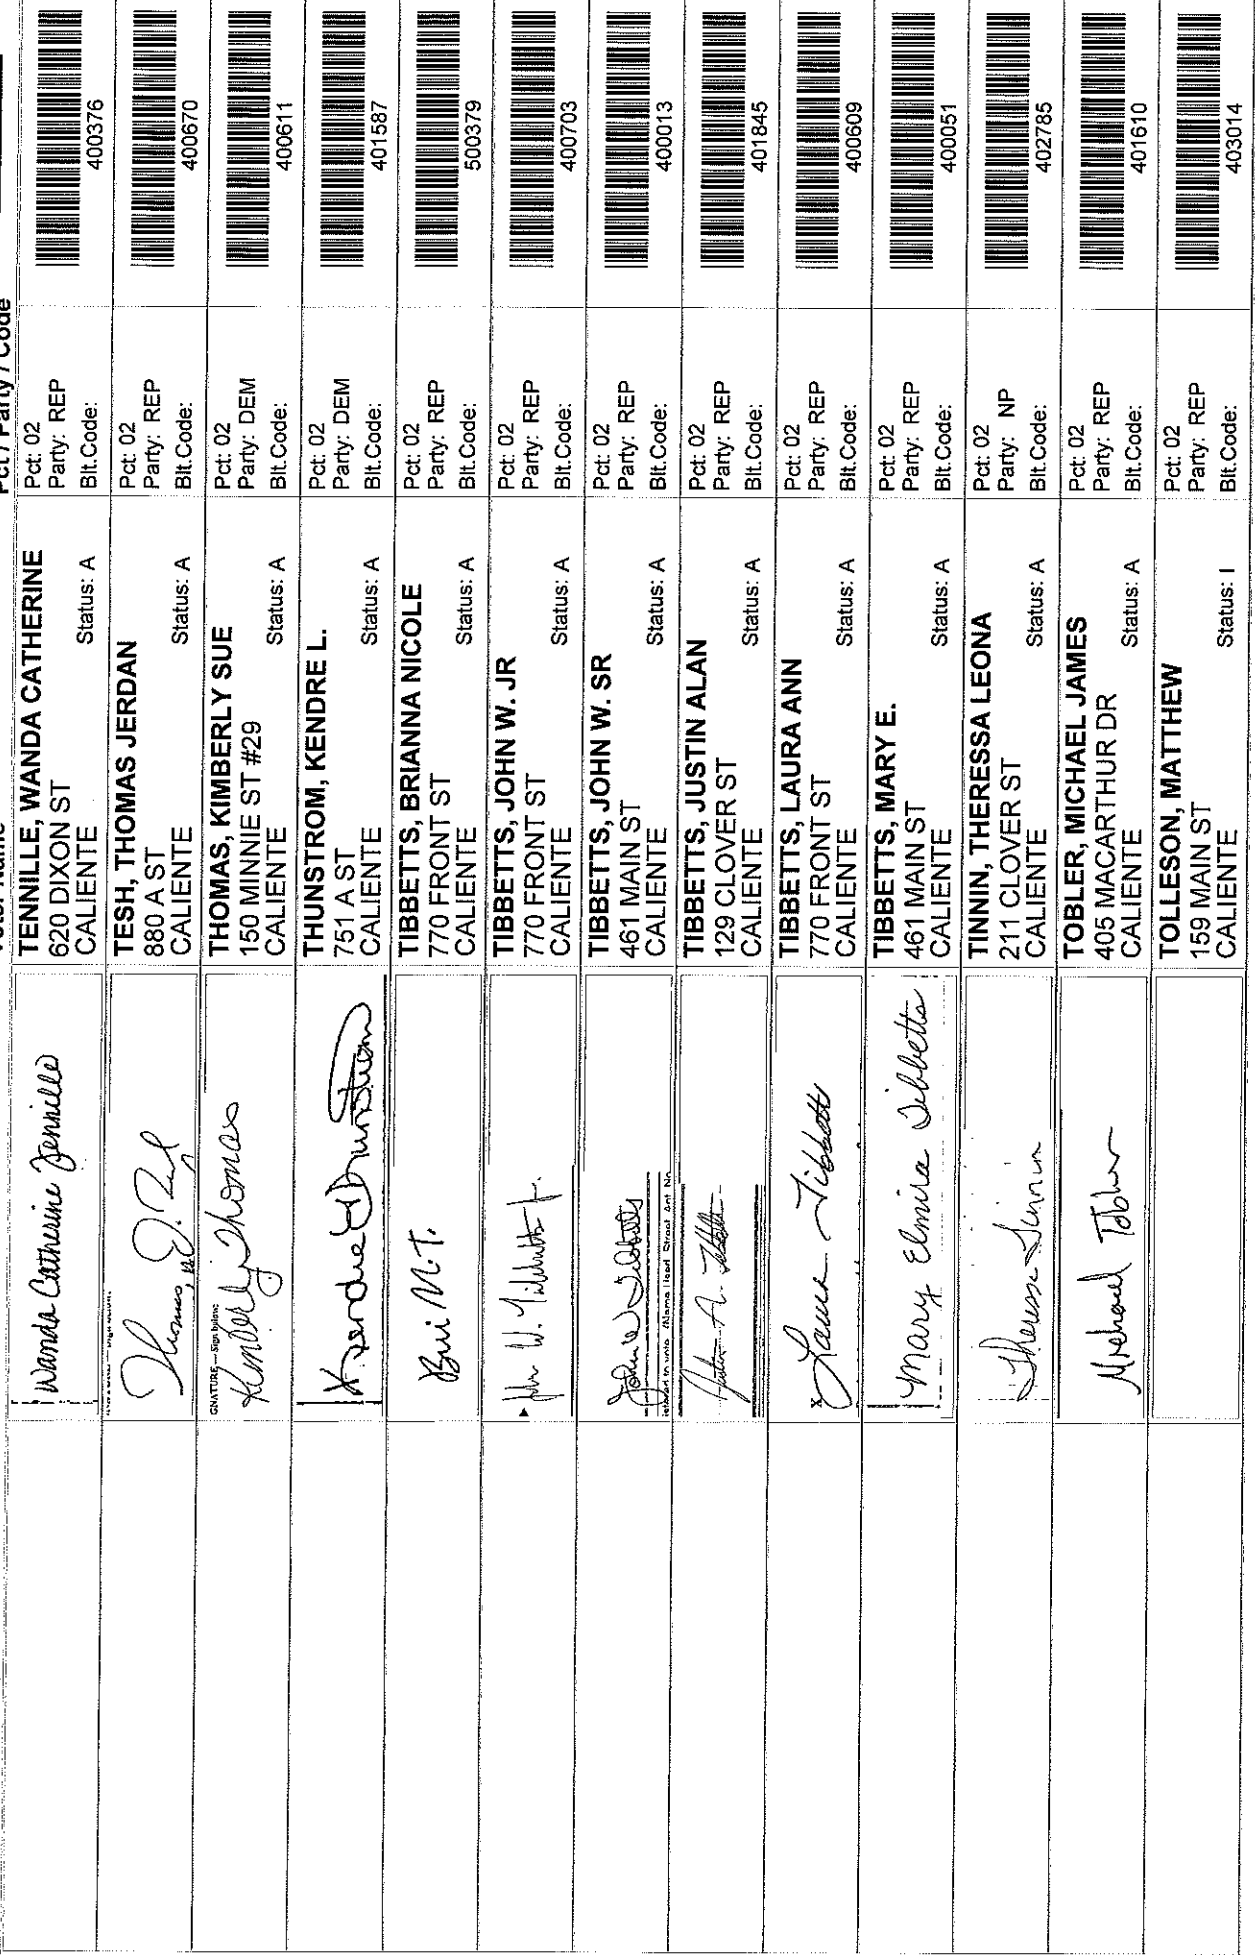 Pct / Party / Code
Wanda Catherine Tennille
TENNILLE, WANDA CATHERINE
620 DIXON ST
CALIENTE
Status: A
Pct: 02
Party: REP
Blt.Code:
400376
TESH, THOMAS JERDAN
880 A ST
CALIENTE
Status: A
Pct: 02
Party: REP
Blt.Code:
400670
GNATURE — Sign below:
Kimberly Thomas
THOMAS, KIMBERLY SUE
150 MINNIE ST #29
CALIENTE
Status: A
Pct: 02
Party: DEM
Blt.Code:
400611
THUNSTROM, KENDRE L.
751 A ST
CALIENTE
Status: A
Pct: 02
Party: DEM
Blt.Code:
401587
Bri N.T.
TIBBETTS, BRIANNA NICOLE
770 FRONT ST
CALIENTE
Status: A
Pct: 02
Party: REP
Blt.Code:
500379
John W. Tibbetts Jr.
TIBBETTS, JOHN W. JR
770 FRONT ST
CALIENTE
Status: A
Pct: 02
Party: REP
Blt.Code:
400703
John W Tibbetts
TIBBETTS, JOHN W. SR
461 MAIN ST
CALIENTE
Status: A
Pct: 02
Party: REP
Blt.Code:
400013
Justin A. Tibbetts
TIBBETTS, JUSTIN ALAN
129 CLOVER ST
CALIENTE
Status: A
Pct: 02
Party: REP
Blt.Code:
401845
x Laura Tibbetts
TIBBETTS, LAURA ANN
770 FRONT ST
CALIENTE
Status: A
Pct: 02
Party: REP
Blt.Code:
400609
Mary Elmira Tibbetts
TIBBETTS, MARY E.
461 MAIN ST
CALIENTE
Status: A
Pct: 02
Party: REP
Blt.Code:
400051
Theressa Tinnin
TINNIN, THERESSA LEONA
211 CLOVER ST
CALIENTE
Status: A
Pct: 02
Party: NP
Blt.Code:
402785
Michael Tobler
TOBLER, MICHAEL JAMES
405 MACARTHUR DR
CALIENTE
Status: A
Pct: 02
Party: REP
Blt.Code:
401610
TOLLESON, MATTHEW
159 MAIN ST
CALIENTE
Status: I
Pct: 02
Party: REP
Blt.Code:
403014